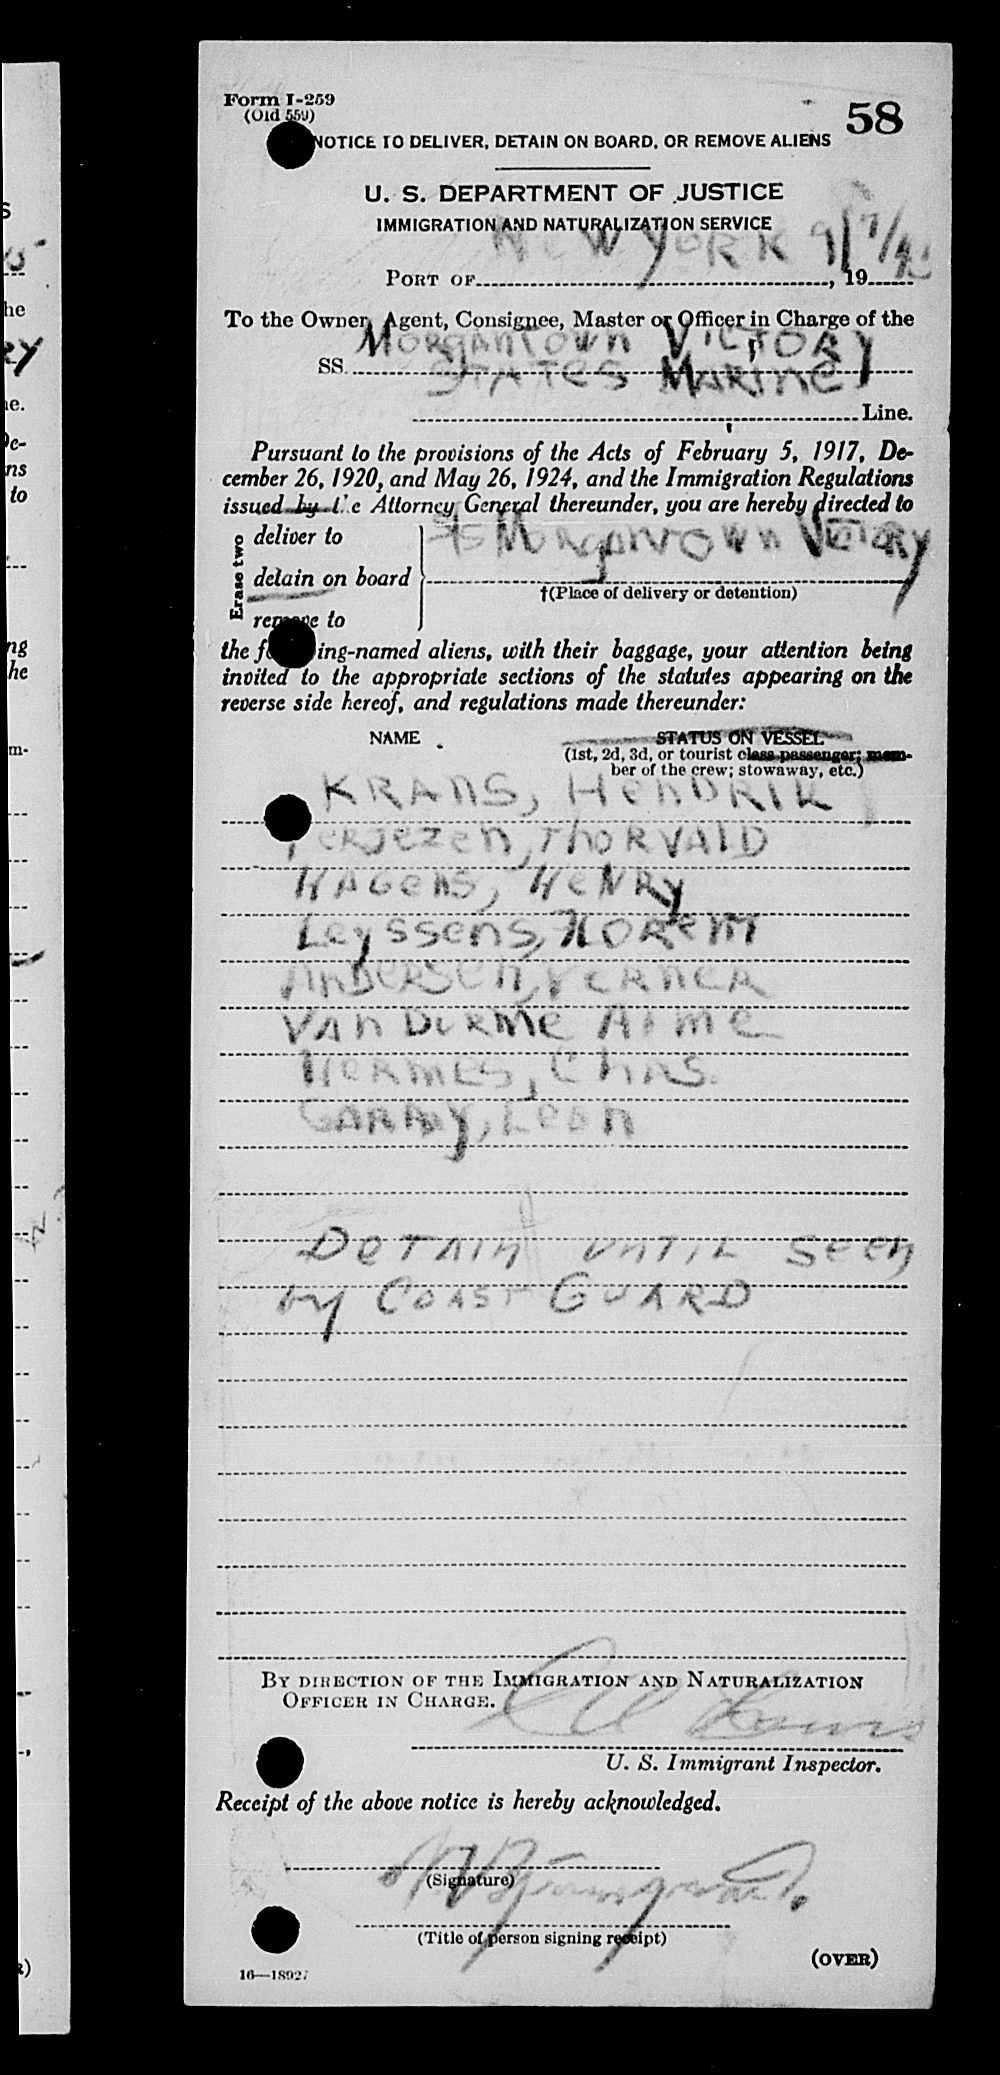 Form I-259
(Old 559)
58
NOTICE TO DELIVER, DETAIN ON BOARD, OR REMOVE ALIENS
U. S. DEPARTMENT OF JUSTICE
IMMIGRATION AND NATURALIZATION SERVICE
New York 9/7/
PORT OF , 19
To the Owner, Agent, Consignee, Master or Officer in Charge of the
Morgantown Victory
SS.
States Marine
Line.
Pursuant to the provisions of the Acts of February 5, 1917, De-
cember 26, 1920, and May 26, 1924, and the Immigration Regulations
issued by the Attorney General thereunder, you are hereby directed to
Erase two
deliver to
SS Morgantown Victory
detain on board
†(Place of delivery or detention)
remove to
the following-named aliens, with their baggage, your attention being
invited to the appropriate sections of the statutes appearing on the
reverse side hereof, and regulations made thereunder:
NAME STATUS ON VESSEL
(1st, 2d, 3d, or tourist class passenger; mem-
ber of the crew; stowaway, etc.)
KRANS, HenDRIK
Terjezen, ThORVALD
HAGens, HeNRy
Leyssens, FLOREnt
AnDERSEn, VERneR
VAn DURMe Aime
HeRMES, ChAS.
GARAy, Leon
DeTAin unTiL seen
by COAST GUARD
BY DIRECTION OF THE IMMIGRATION AND NATURALIZATION
OFFICER IN CHARGE.
Lewis
U. S. Immigrant Inspector.
Receipt of the above notice is hereby acknowledged.
(Signature)
(Title of person signing receipt)
(OVER)
16—18927